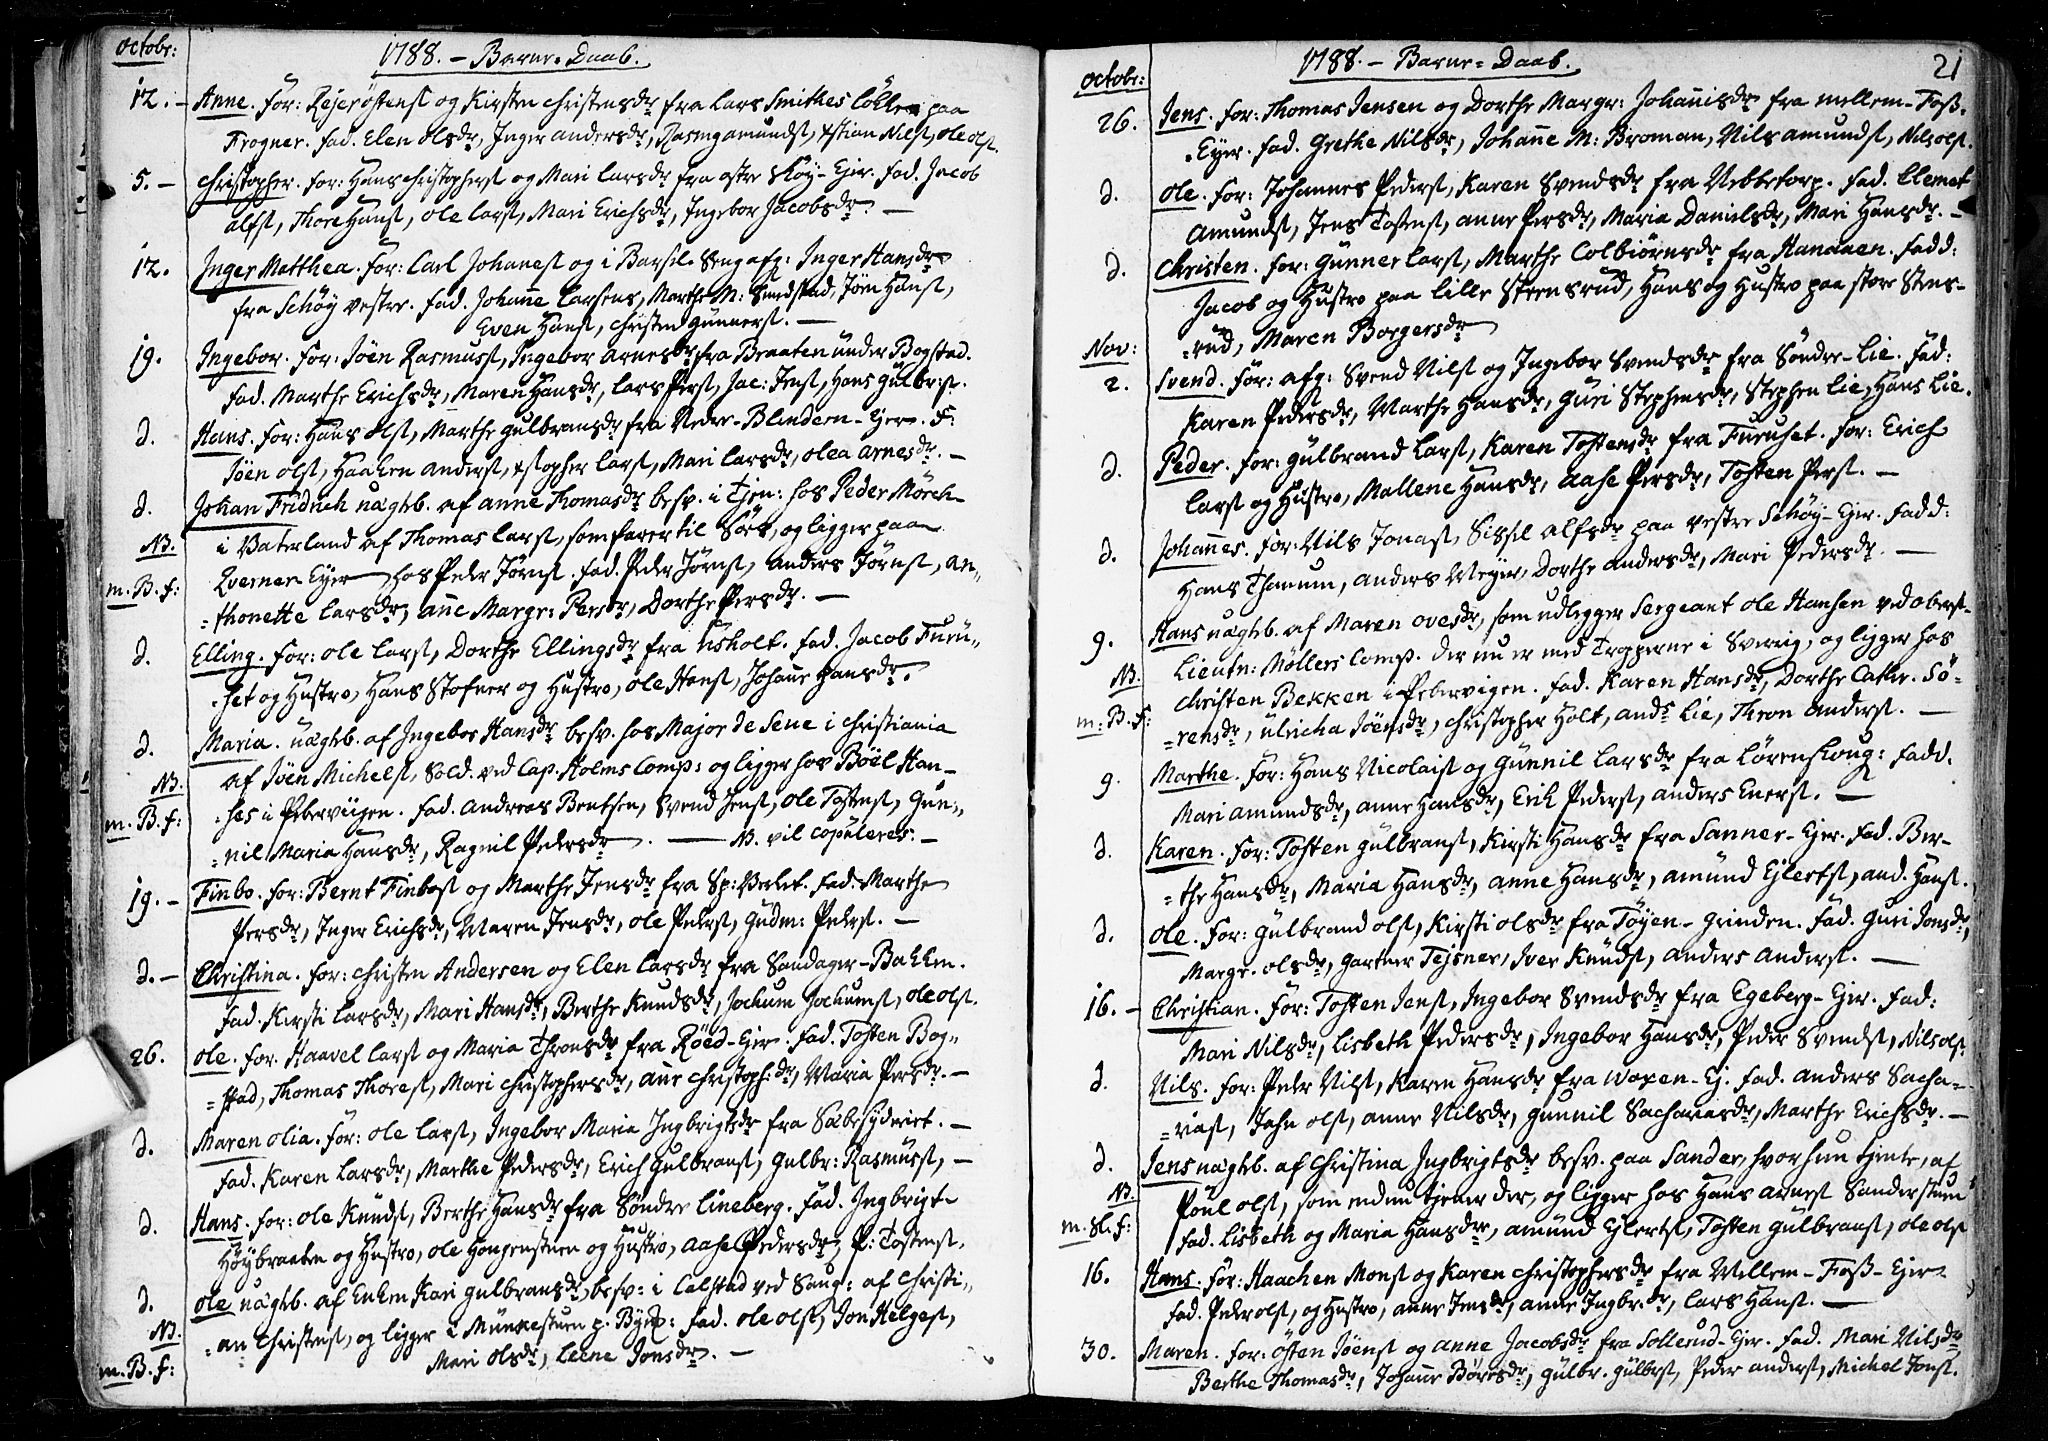 octobr:
1788. – Barne-Daab.
12. – Anne. For: Reserøstens og Kirsten Christensdr fra Lars Smithes Løkke paa
Frogner. Fad. Elen Olsdr, Inger Andersdr, Rasmg Amunds, +stian Nils, Ole Ols.
5. – Christopher. For: Hans Christophers og Mari Larsdr fra østre Skøy-Ejer. Fad. Jacob
Alfs, Thore Hans, Ole Lars, Mari Erichsdr, Ingebor Jacobsdr. –
12. Inger Matthea. For: Carl Johanes og i Barsel-Seng afg: Inger Hansdr
fra Schøy vestre. Fad. Johanne Larsens, Marthe M: Sundstad, Jørn Hans,
Even Hans, Christen Gunners. –
19. Ingebor. For: Jøen Rasmuss, Ingebor Arnesdr fra Braaten under Bogstad.
Fad. Marthe Erichsdr, Maren Hansdr, Lars Pers, Jac: Jens, Hans Gulbr:s.
d. Hans. For: Hans Ols, Marthe Gulbransdr fra Nedre-Blindern-Ejer. F:
Jøen Ols, Haaken Anders, +stopher Lars, Mari Larsdr, Olea Arnesdr. –
d. Johan Fridrich uægteb. af Anne Thomasdr besv. i Tjen: hos Peder Mørch
NB. i Vaterland af Thomas Lars, som farer til Søes, og ligger paa
m. B. f: Qverner Ejer hos Peder Jørns. Fad. Peder Jørns, Anders Jørns, An-
-thonette Larsdr, Anne Margr: Persdr, Dorthe Persdr. –
d. Elling. For: Ole Lars, Dorthe Ellingsdr fra Ilsholt. Fad. Jacob Furu-
-set og Hustro, Hans Stofner og Hustro, Ole Hans, Johanne Hansdr.
d. Maria. uægteb. af Ingebor Hansdr besv. hos Major de Sene i Christiania
NB. af Jøen Michels, Sold. ved Cap. Holms Comp: og ligger hos Böel Han-
m. B. f: -ses i Pebervigen. Fad. Andreas Bentsen, Svend Jens, Ole Tostens, Gun-
-nil Maria Hansdr, Ragnil Pedersdr. – NB. vil copuleres. –
19. – Finbo. For: Bernt Finbos og Marthe Jensdr fra Sp: Verket. Fad. Marthe
Persdr, Inger Erichsdr, Maren Jensdr, Ole Peders, Gudm: Peders. –
d. – Christina. For: Christen Andersen og Elen Larsdr fra Sandager-Bakken.
Fad. Kirsti Larsdr, Mari Hansdr, Berthe Knudsdr, Jochum Jochums, Ole Ols.
26. Ole. For. Haavel Lars og Maria Thronsdr fra Røed-Ejer. Fad. Tosten Bog-
-stad, Thomas Thores, Mari Christophersdr, Ane Christoph:dr, Maria Persdr. –
d. Maren Olia. For: Ole Lars, Ingebor Maria Ingbrigtsdr fra Sæbesyderiet. –
Fad. Karen Larsdr, Marthe Pedersdr, Erich Gulbrans, Gulbr: Rasmuss, –
d. Hans. For: Ole Knuds, Berthe Hansdr fra Søndre Lineberg. Fad. Ingbrigt
Høybraaten og Hustro, Ole Haugenstuen og Hustro, Aase Pedersdr, P: Tostens.
d. Ole uægteb. af Enken Kari Gulbransdr, besv: i Calstad ved Saug: af Christi-
NB. -an Christens, og ligger i Munkestuen p. Byen: Fad. Ole Ols, Jon Helges,
m. B. f: Mari Olsdr, Leene Jonsdr. –
1788. – Barne-Daab.
21
octobr:
26. Jens. For: Thomas Jensen og Dorthe Margr: Johanisdr fra mellem-Foss-
-Ejer. Fad. Grethe Nilsdr, Johanne M: Broman, Nils Amunds, Nils Ols.
d. Ole. For: Johannes Peders, Karen Svendsdr fra Ulvetorp. Fad. Clemet
Amunds, Jens Tostens, Anne Persdr, Maria Danielsdr, Mari Hansdr. –
d. Christen. For: Gunner Lars, Marthe Colbiørnsdr fra Hanaaen. Fadd:
Jacob og Hustro paa lille Steensrud, Hans og Hustro paa store Stens-
-rud, Maren Borgersdr
Nov:
2. Svend. For: afg: Svend Nils og Ingebor Svendsdr fra Søndre-Lie. Fad:
Karen Pedersdr, Marthe Hansdr, Guri Stephensdr, Stephen Lie, Hans Lie.
d. Peder. For: Gulbrand Lars, Karen Tostensdr fra Furuset. For: Erich
Lars og Hustro, Mallene Hansdr, Aase Persdr, Tosten Pers. –
d. Johannes. For: Nils Jonas, Sissil Alfsdr paa vestre Schøy-Ejer. Fadd:
Hans Thanum, Anders Meyer, Dorthe Andersdr, Mari Pedersdr. –
9. Hans uægteb. af Maren Ovesdr, som udlegger Sergeant Ole Hansen ved Oberst-
NB. Lieutn: Møllers Comp. der nu er med Tropperne i Sverig, og ligger hos
m. B. f: Christen Bekken i Pebervigen. Fad. Karen Hansdr, Dorthe Cathr. Sø-
-rensdr, Ulricha Jöensdr, Christopher Holt, Ands Lie, Thron Anders. –
9. Marthe. For: Hans Nicolais og Gunnil Larsdr fra Lørenskoug: Fadd.
Mari Amundsdr, Anne Hansdr, Erik Peders, Anders Eners. –
d. Karen. For: Tosten Gulbrans, Kirsti Hansdr fra Sanner-Ejer. Fad. Ber-
-the Hansdr, Maria Hansdr, Anne Hansdr, Amund Ejlerts, And. Hans.
d. Ole. For: Gulbrand Ols, Kirsti Olsdr fra Tøyen-Grinden. Fad. Guri Jonsdr,
Margr. Olsdr, Gartner Tejsner, Iver Knuds, Anders Anders. –
16. – Christian. For: Tosten Jens, Ingebor Svendsdr fra Egeberg-Ejer. Fad:
Mari Nilsdr, Lisbeth Pedersdr, Ingebor Hansdr, Peder Svends, Nils Ols.
d. Nils. For: Peder Nils, Karen Hansdr fra Woxen-Ej. Fad. Anders Sacha-
-rias, Jahn Ols, Anne Nilsdr, Gunnil Sachariasdr, Marthe Erichsdr. –
d. Jens uægteb. af Christina Ingbrigtsdr besv. paa Sander, hvor hun tjente, af
NB. Poul Ols, som endnu tjener der, og ligger hos Hans Arnes Sanderstuen
m. Sl. f: Fad. Lisbeth og Maria Hansdr, Amund Ejlerts, Tosten Gulbrans, Ole Ols
16. Hans. For: Haachen Mons og Karen Christophersdr fra Mellem-Foss-Ejer
Fad. Peder Ols, og Hustro, Anne Jensdr, Anne Ingbr:dr, Lars Hans. –
30. Maren. For: Østen Jöens og Anne Jacobsdr fra Sollerud-Ejer. Fad. Mari Nilsdr
Berthe Thomasdr, Johanne Børresdr, Gulbr. Gulbrs, Peder Anders, Michel Jons.